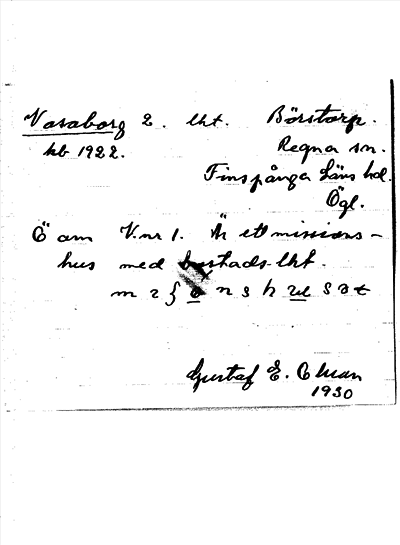 Vasaborg 2. lht. Börstorp.
kb 1922. Regna sn.
Finspånga läns hd.
Ögl.
Ö om V.nr 1. Är ett missions-
hus med bostads-lht.
Gustaf E.
1930